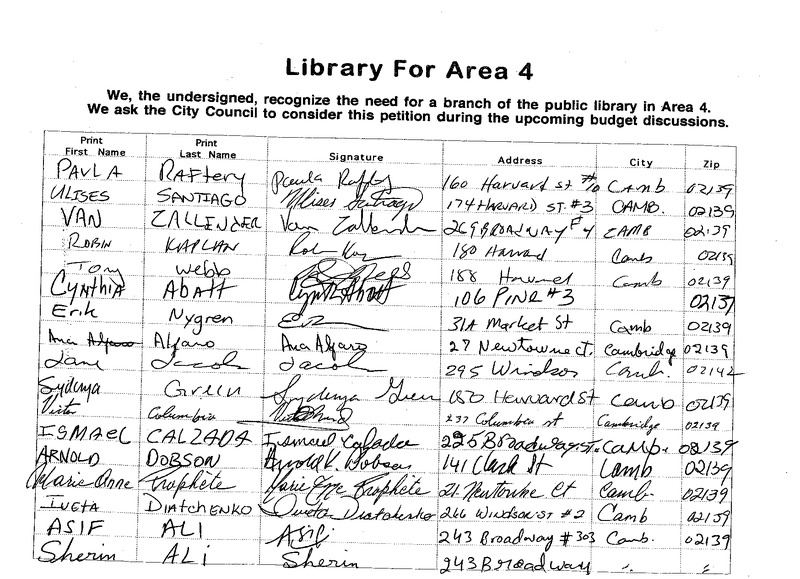 Library For Area 4
We, the undersigned, recognize the need for a branch of the public library in Area 4.
We ask the City Council to consider this petition during the upcoming budget discussions.
Print First Name Print Last Name Signature Address City Zip
PAULA RAFtery Paula Raftery 160 Harvard St #10 CAmb 02139
ULISES SANTIAGO Ulises Santiago 174 HARVARD ST. #3 CAMB. 02139
VAN ZALLINGER Van 269 BROADWAY #4 CAMB 02139
ROBIN KAPLAN 180 Harvard Camb 02139
Tony Webb 188 Harvard Camb 02139
CyNtHiA Abatt Cynthia Abatt 106 PINE #3 02139
Erik Nygren 31A Market St Camb 02139
Ana Alfaro Alfaro Ana Alfaro 27 Newtowne Ct. Cambridge 02139
Jane Jacob Jacob 295 Windsor Camb. 02142
Sydenya Green Sydenya Green 180 Harvard St Camb 02139
Columbia 237 Columbia st Cambridge 02139
ISMAEL CALZADA Ismael Calzada 225 Broadway st. CAMB. 02139
ARNOLD DOBSON Arnold K. Dobson 141 Clark St Camb 02139
Marie Anne Trophete Marie Anne Trophete 21 Newtowne Ct Camb. 02139
IVETA DIATCHENKO Iveta Diatchenko 266 WINDSOR ST #2 Camb 02139
ASIF ALI ASif 243 Broadway #303 Camb. 02139
Sherin ALi Sherin 243 Broadway " "